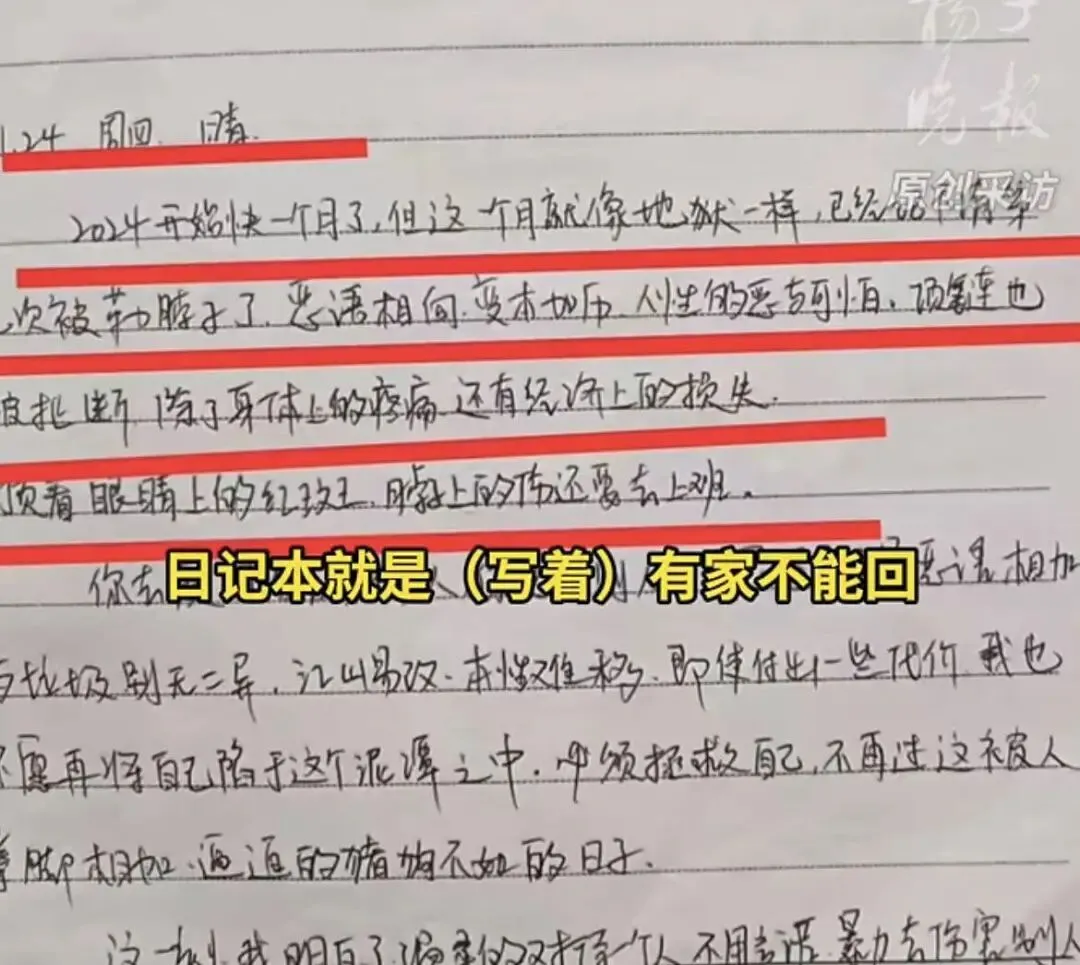 扬子
晚报
原创采访
1.24 周四 晴.
2024开始快一个月了,但这一个月就像地狱一样,已经
次被勒脖子了.恶语相向.变本加厉.人性的恶与可怕.项链也
被扯断 除了身体上的疼痛 还有经济上的损失.
顶着眼睛上的红 脖子上的伤还要去上班.
你去 恶语相加
日记本就是（写着）有家不能回
与垃圾别无二异.江山易改.本性难移.即使付出一些代价 我也
不愿再将自己陷于这个泥潭之中.必须拯救自己,不再过这被人
拳脚相加.逼迫的猪狗不如的日子.
这一刻我明白了 一个人 不用言语.暴力去伤害别人